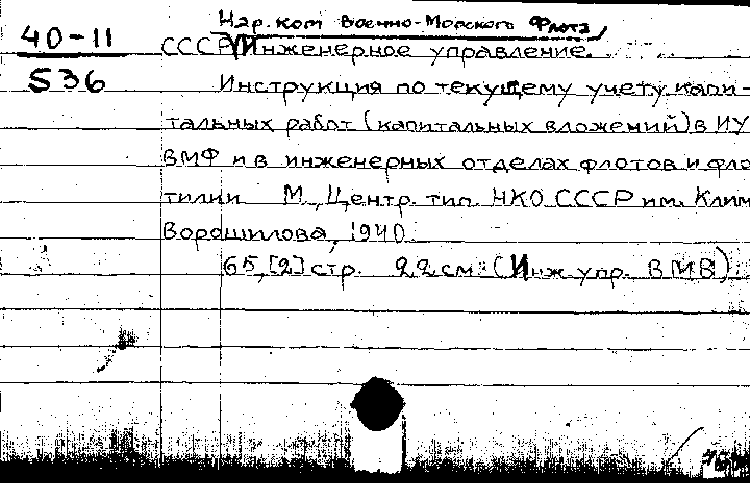 Нар. ком Военно-Морского Флота/
40-11
СССР Инженерное управление.
536
Инструкция по текущему учету капи-
тальных работ (капитальных вложений) в ИУ
ВМФ и в инженерных отделах флотов и фло
тилии М., Центр. тип. НКО СССР им. Клим
Ворошилова, 1940.
65, [2] стр. 22 см. (Инж. упр. ВМВ).